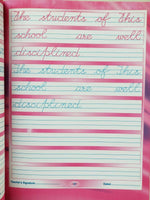 The students of this
school are well
disciplined.
The students of this
school are well
disciplined.
Teacher's Signature
Date: